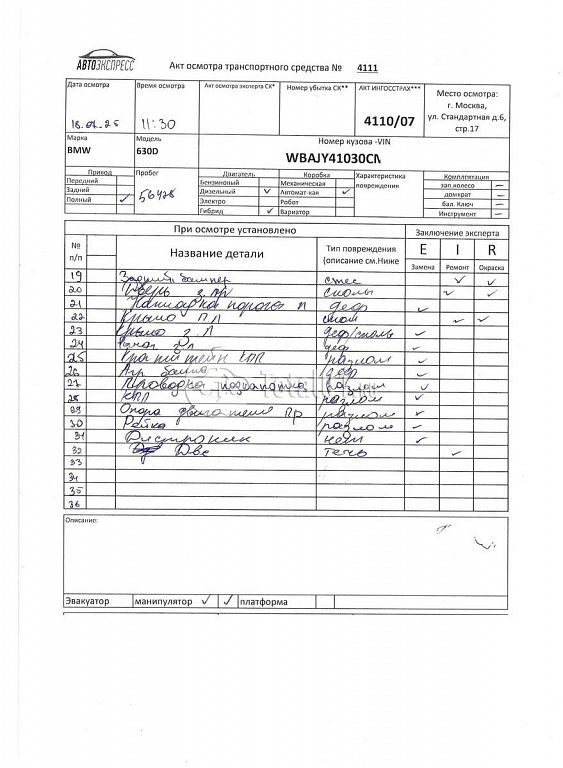 АВТОЭКСПРЕСС
Акт осмотра транспортного средства № 4111
Дата осмотра
Время осмотра
Акт осмотра эксперта СК*
Номер убытка СК**
АКТ ИНГОССТРАХ***
Место осмотра:
г. Москва,
ул. Стандартная д.6,
стр.17
11:30
4110/07
Марка
Модель
Номер кузова -VIN
BMW
630D
WBAJY41030CN
Привод
Передний
Задний
Полный ✓
Пробег
56478
Двигатель
Бензиновый
Дизельный ✓
Электро
Гибрид ✓
Коробка
Механическая
Автомат-кая ✓
Робот
Вариатор
Характеристика
повреждения
Комплектация
зап.колесо —
домкрат —
бал. Ключ —
Инструмент —
При осмотре установлено
Заключение эксперта
№
п/п
Название детали
Тип повреждения
(описание см.Ниже
E I R
Замена Ремонт Окраска
19 Задний бампер ✓ ✓
20 Дверь з. пр сколы ✓ ✓
21 Накладка порога п деф ✓
22 Крыло П Л скол ✓ ✓
23 Крыло з. Л деф/сколь ✓
24 деф ✓
25 КПП разлом ✓
26 деф ✓
27 Проводка разлом ✓
28 КПП разлом ✓
29 Опора двигателя Пр разлом ✓
30 Рейка разлом ✓
31 Дистроник нет ✓
32 Двс течь ✓
33
34
35
36
Описание:
Эвакуатор манипулятор ✓ ✓ платформа